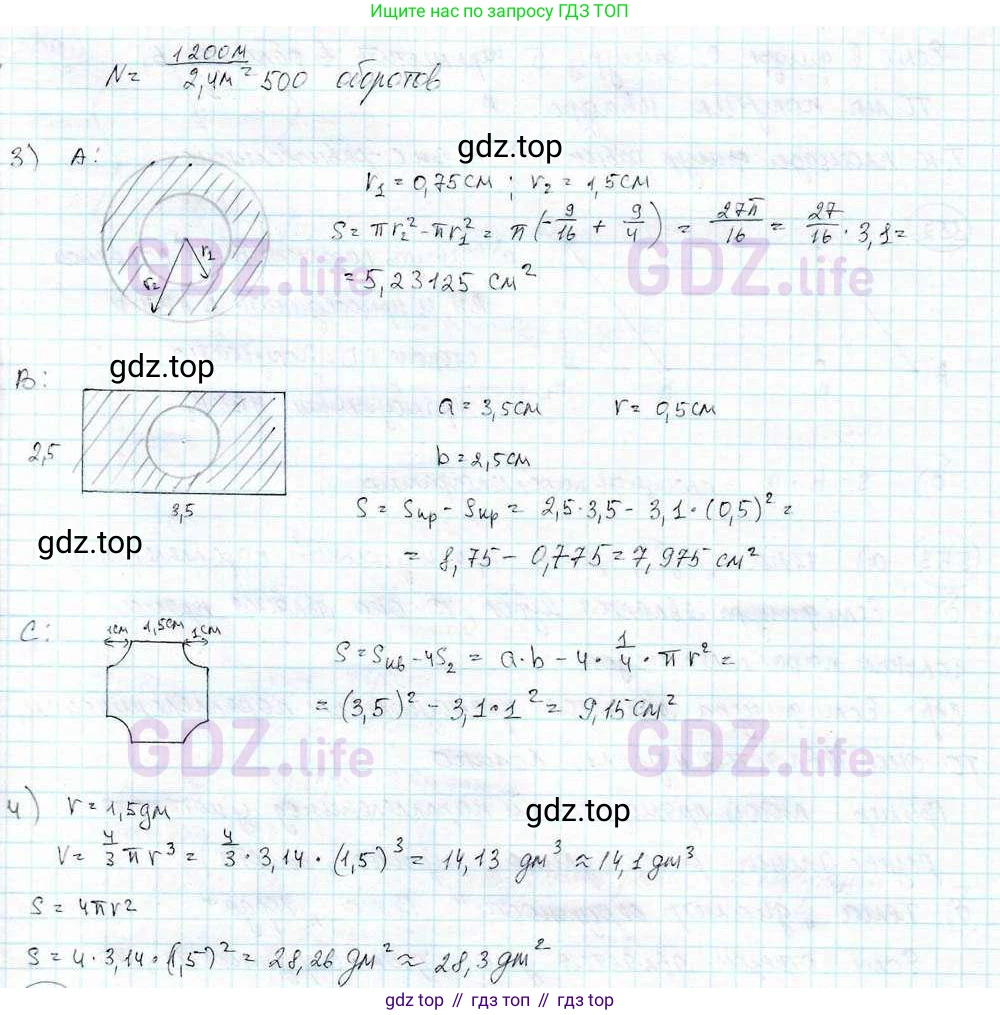 Ищите нас по запросу ГДЗ ТОП
N = 1200м / 2,4м = 500 оборотов
3) A:
gdz.top
r₁ = 0,75см ; r₂ = 1,5см
S = πr₂² - πr₁² = π(-9/16 + 9/4) = 27π/16 = 27/16 · 3,1 =
= 5,23125 см²
r₁
r₂
GDZ.life GDZ.life
gdz.top
B:
a = 3,5см r = 0,5см
2,5
b = 2,5см
3,5
S = Sпр - Sкр = 2,5·3,5 - 3,1·(0,5)² =
gdz.top
= 8,75 - 0,775 = 7,975 см²
C:
1см 1,5см 1см
S = Sкв - 4S₂ = a·b - 4·1/4·πr² =
= (3,5)² - 3,1·1² = 9,15см²
GDZ.life GDZ.life
4) r = 1,5дм
gdz.top
V = 4/3 πr³ = 4/3 · 3,14 · (1,5)³ = 14,13 дм³ ≈ 14,1 дм³
S = 4πr²
S = 4 · 3,14 · (1,5)² = 28,26 дм² ≈ 28,3 дм²
gdz.top // гдз топ // гдз top